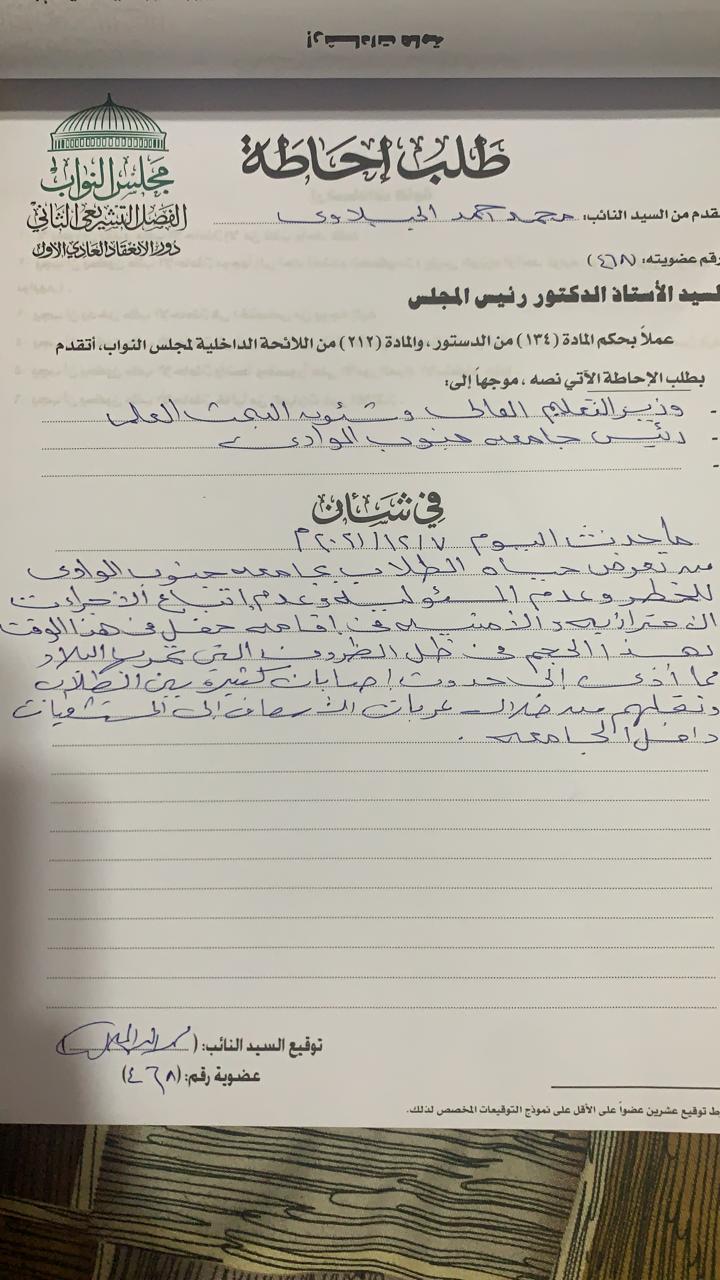 إرشـــادات هامة
مجلس النواب
الفصل التشريعى الثانى
دور الانعقاد العادى الاول
طلب إحاطة
قدم من السيد النائب: محمد احمد الجبلاوى
رقم عضويته: (٤٦٨)
لسيد الأستاذ الدكتور رئيس المجلس
عملاً بحكم المادة (١٣٤) من الدستور، والمادة (٢١٢) من اللائحة الداخلية لمجلس النواب، أتقدم
بطلب الإحاطة الآتي نصه، موجهاً إلى:
- وزير التعليم العالى وشئون البحث العلمى
- رئيس جامعه جنوب الوادى
-
في شأن
ماحدث اليوم ٢٠٢١/١٢/٧م
من تعرض حياه الطلاب بجامعه جنوب الوادى
للخطر وعدم المسئوليه وعدم إتباع الأجراءت
الاحترازيه والأمنيه فى إقامه حفل فى هذا الوقت
بهذا الحجم فى ظل الظروف التى تمر بها البلاد
مما أدى إلى حدوث إصابات كثيرة بين الطلاب
ونقلهم من خلال عربات الأسعاف إلى المستشفيات
داخل الجامعه .
توقيع السيد النائب: ( )
عضوية رقم: (٤٦٨)
ط توقيع عشرين عضواً على الأقل على نموذج التوقيعات المخصص لذلك.